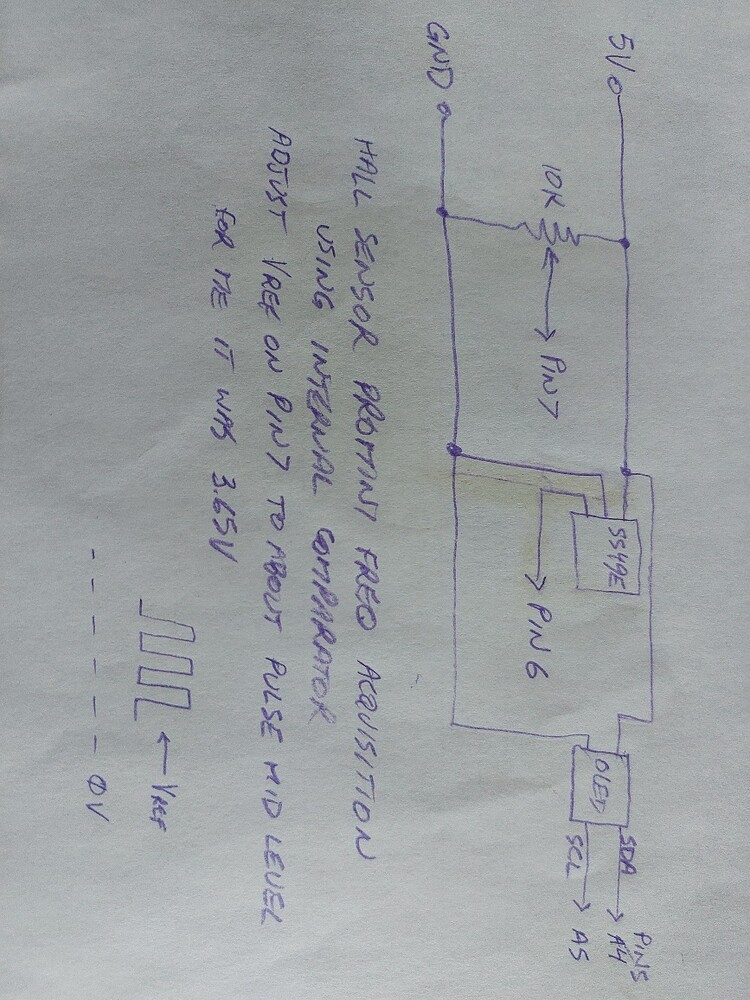 5V
GND
10K
PIN7
SS49E
PIN 6
OLED
SDA
SCL
PINS
A4
A5
HALL SENSOR PROMINI FREQ ACQUISITION
USING INTERNAL COMPARATOR
ADJUST VREF ON PIN7 TO ABOUT PULSE MID LEVEL
FOR ME IT WAS 3.65V
VREF
0V